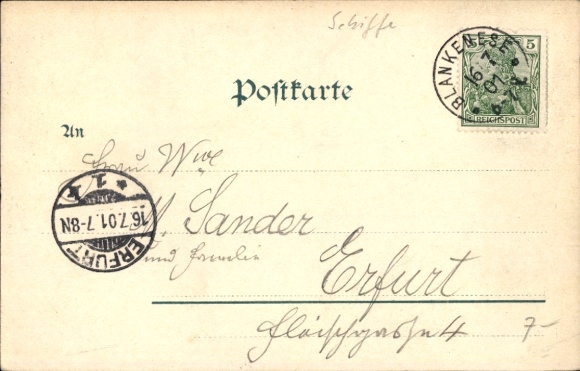 Schiffe
BLANKENESE
16.7.
01
5
REICHSPOST
Postkarte
An
Frau Wwe
M. Sander
und Familie
Erfurt
Fleischgasse 4
7-
ERFURT
16.7.01.7-8N
* 1